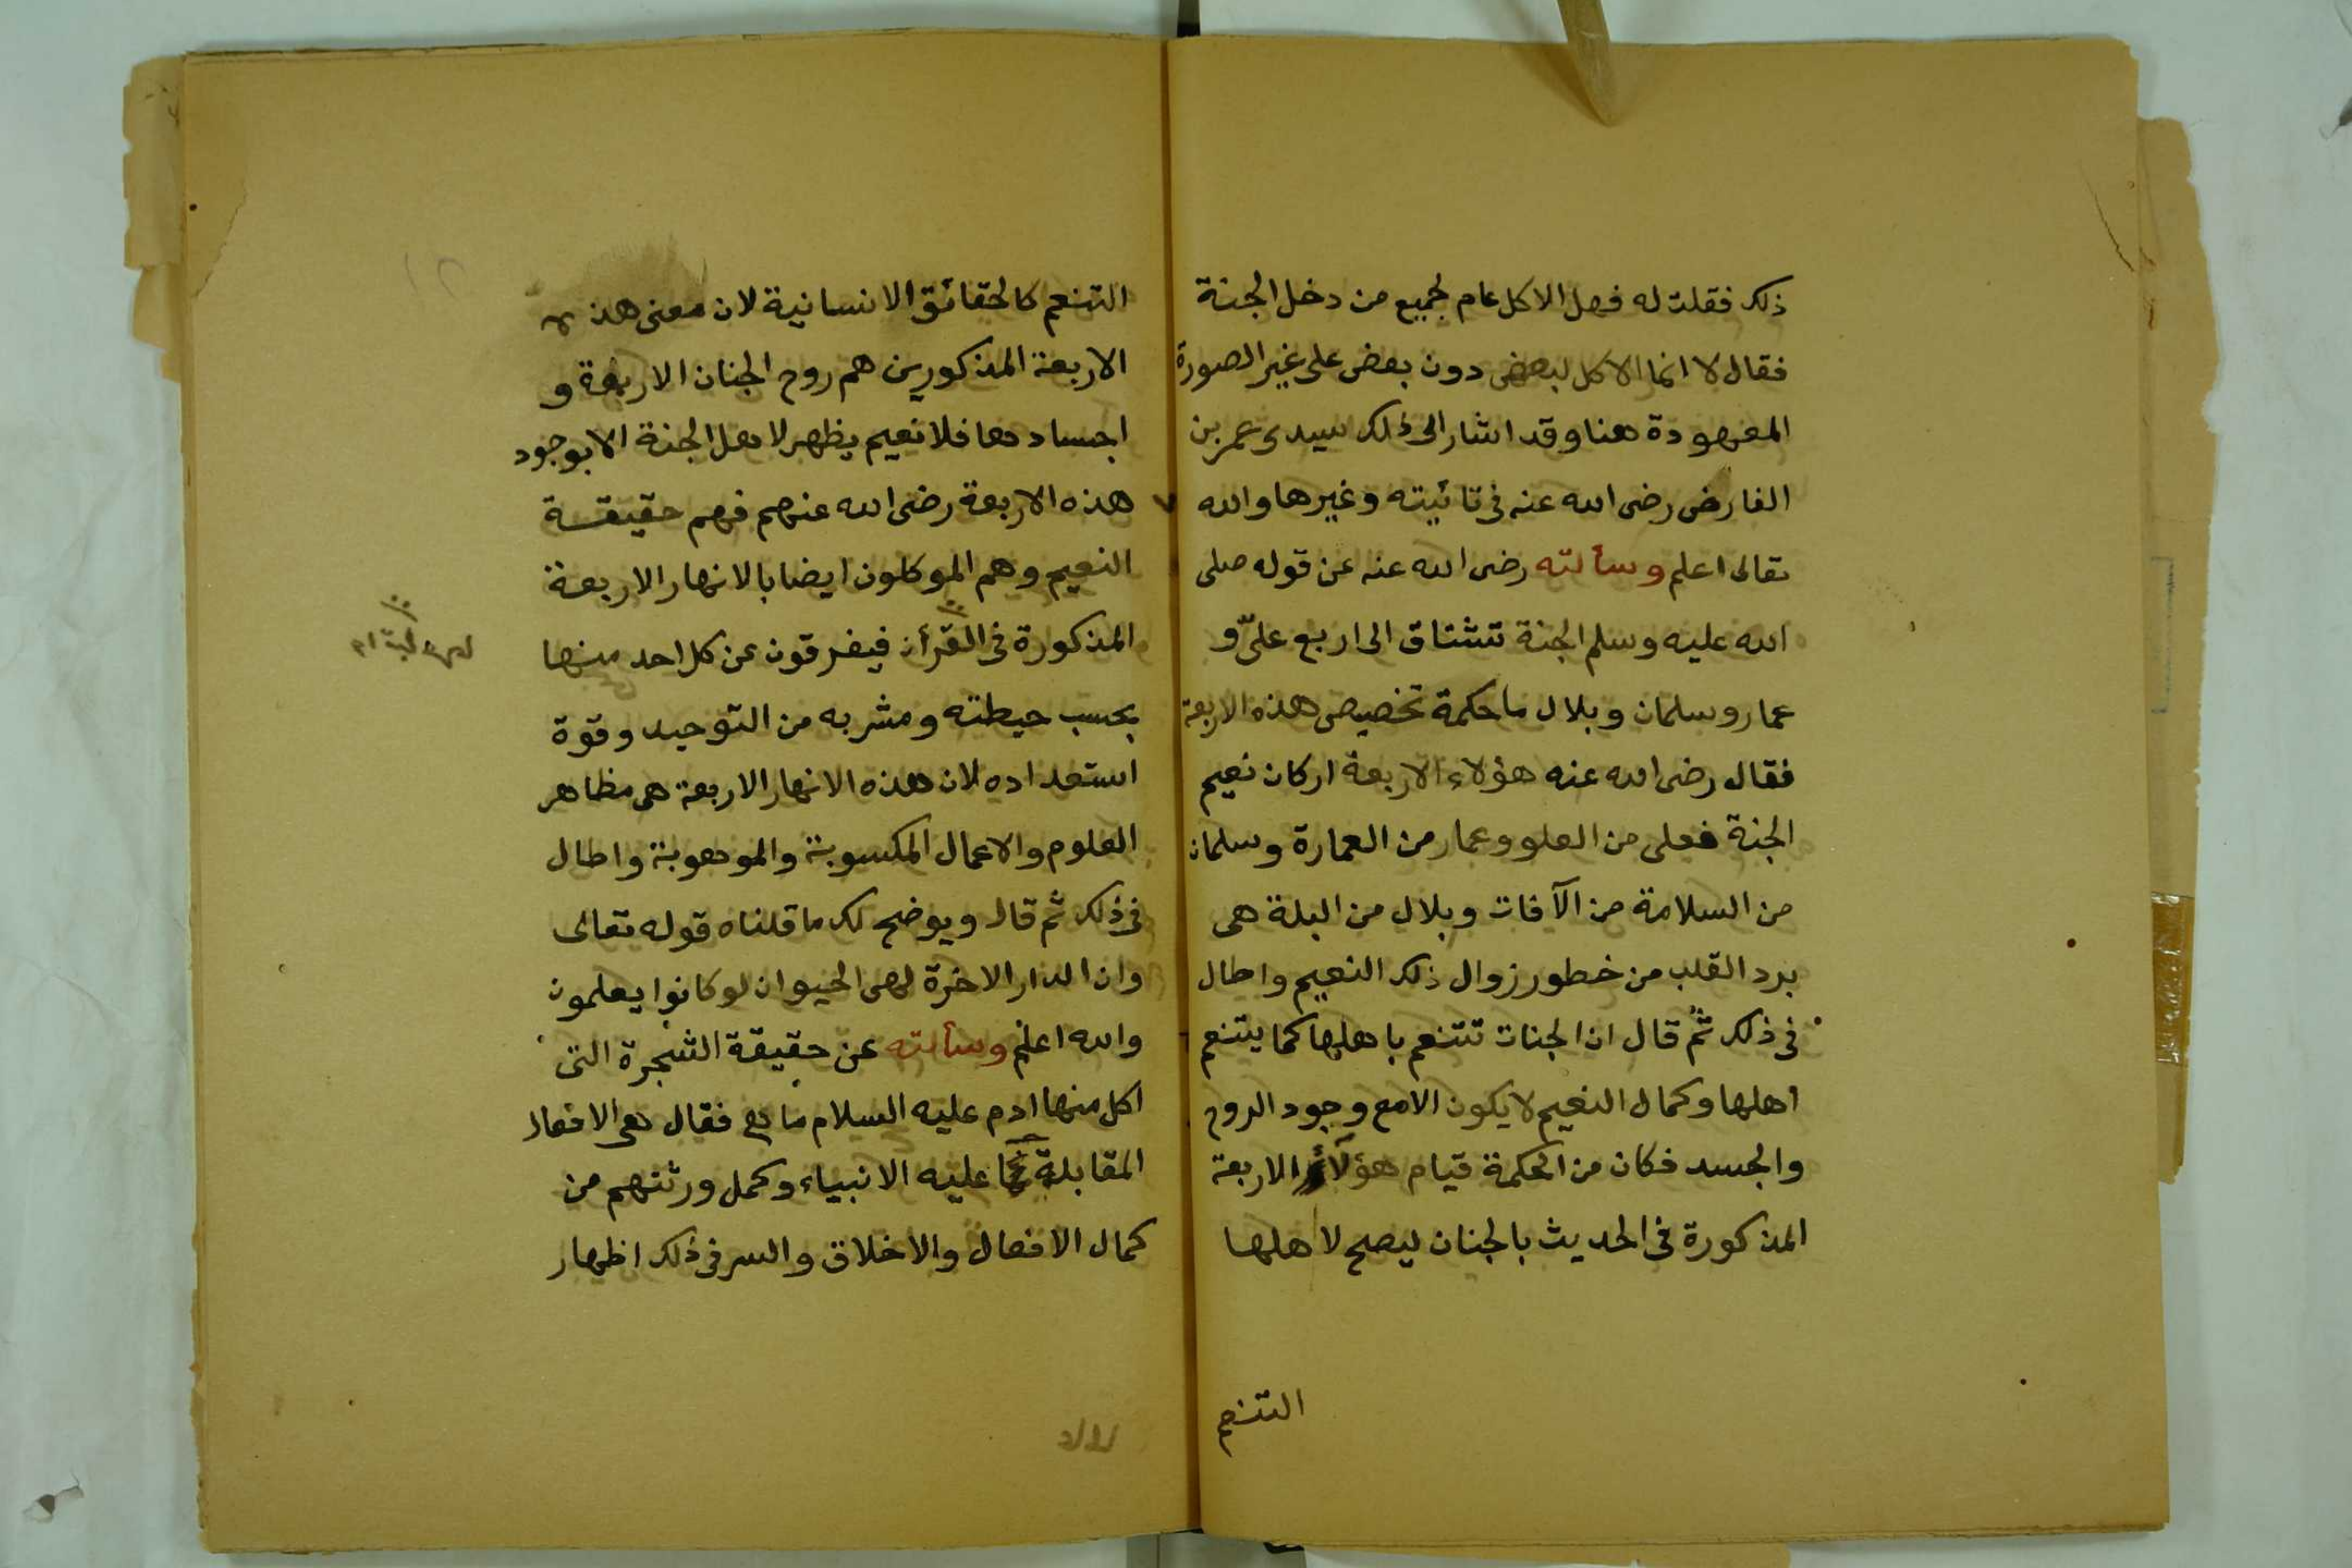 ذلك فقلت له فهل الاكل عام لجميع من دخل الجنة
فقال لا انما الاكل لبعض دون بعض على غير الصورة
المعهودة هنا وقد اشار الى ذلك سيدى عمر بن
الفارض رضى الله عنه فى تائيته وغيرها والله
تعالى اعلم وسألته رضى الله عنه عن قوله صلى
الله عليه وسلم الجنة تشتاق الى اربع علىّ و
عمار وسلمان وبلال ما حكمة تخصيص هذه الاربعة
فقال رضى الله عنه هؤلاء الاربعة اركان نعيم
الجنة فعلى من العلو وعمار من العمارة وسلمان
من السلامة من الآفات وبلال من البلة هى
برد القلب من خطور زوال ذلك النعيم واطال
فى ذلك ثم قال ان الجنات تتنعم باهلها كما يتنعم
اهلها وكمال النعيم لا يكون الا مع وجود الروح
والجسد فكان من الحكمة قيام هؤلاء الاربعة
المذكورة فى الحديث بالجنان ليصح لاهلها
التنعم
التنعم كالحقائق الانسانية لان معنى هذه
الاربعة المذكورين هم روح الجنان الاربعة و
اجسادها فلا نعيم يظهر لاهل الجنة الا بوجود
هذه الاربعة رضى الله عنهم فهم حقيقة
النعيم وهم الموكلون ايضا بالانهار الاربعة
المذكورة فى القرأن فيفرقون عن كل احد منها
بحسب حيطته ومشربه من التوحيد وقوة
استعداده لان هذه الانهار الاربعة هى مظاهر
العلوم والاعمال المكسوبة والموهوبة واطال
فى ذلك ثم قال ويوضح لك ما قلناه قوله تعالى
وان الدار الاخرة لهى الحيوان لو كانوا يعلمون
والله اعلم وسألته عن حقيقة الشجرة التى
اكل منها ادم عليه السلام ما هى فقال هى الافعال
المقابلة لما عليه الانبياء وكمل ورثتهم من
كمال الافعال والاخلاق والسر فى ذلك اظهار